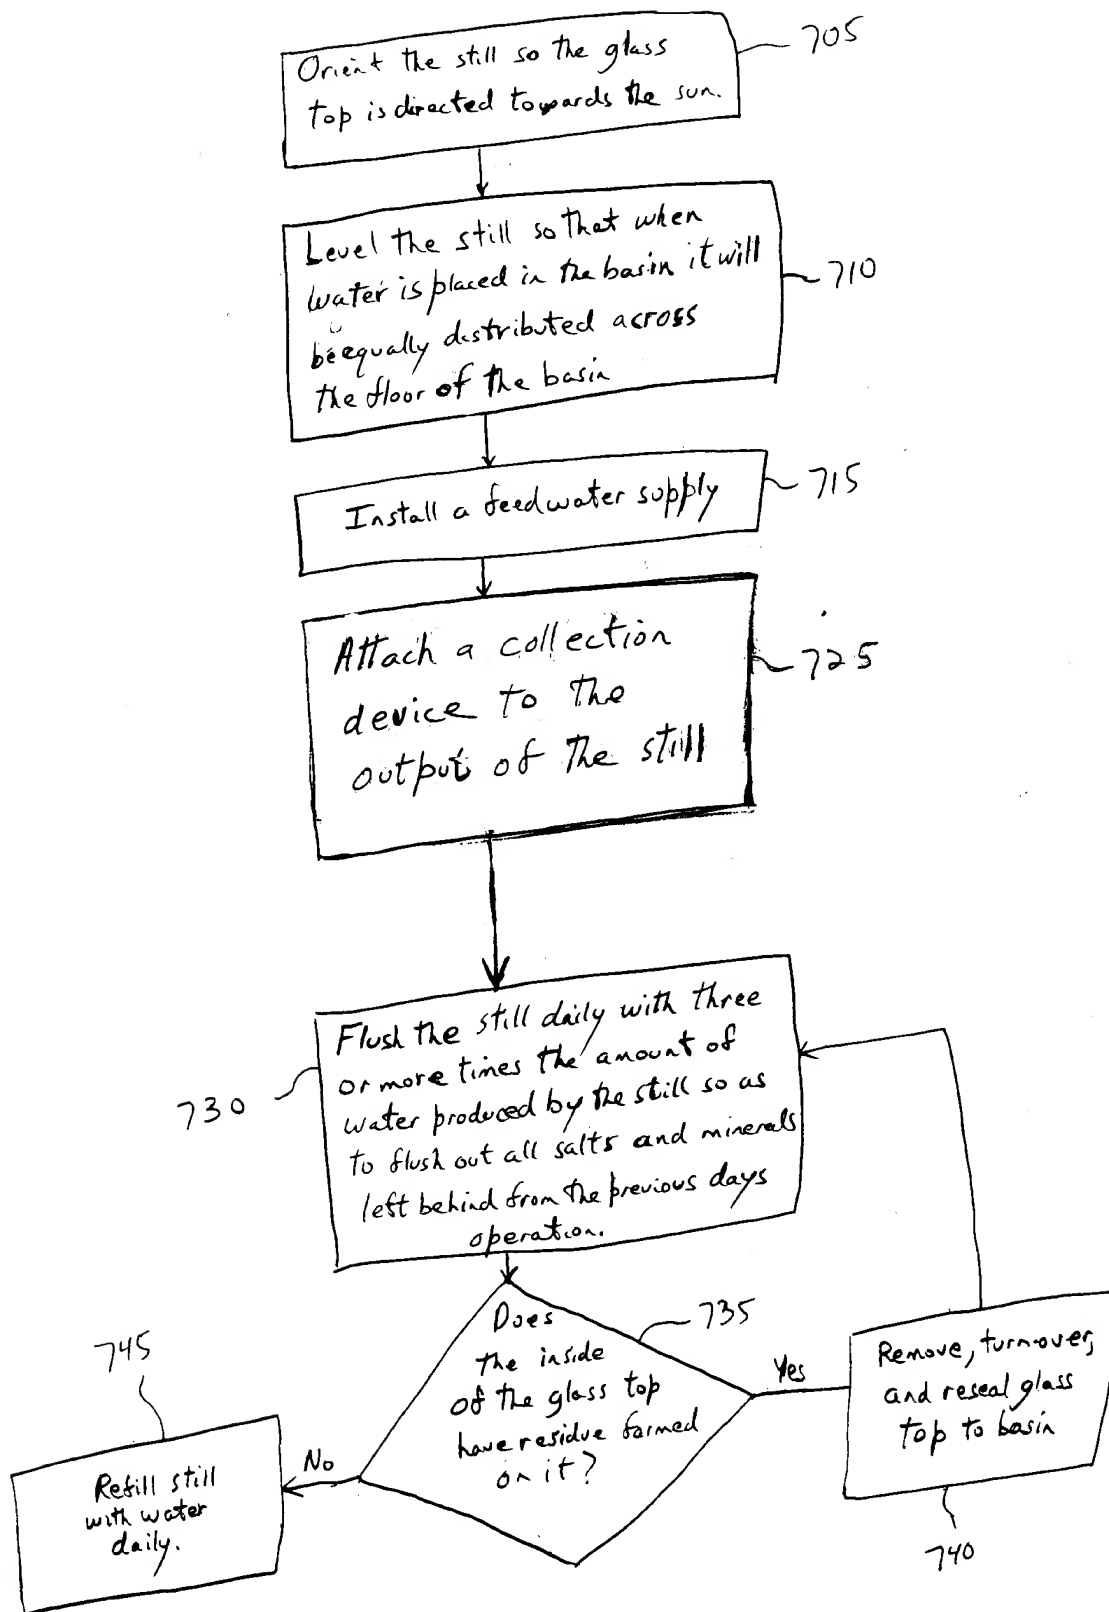 Orient the still so the glass
top is directed towards the sun.
705
Level the still so that when
water is placed in the basin it will
be equally distributed across
the floor of the basin
710
Install a feedwater supply
715
Attach a collection
device to the
output of the still
725
Flush the still daily with three
or more times the amount of
water produced by the still so as
to flush out all salts and minerals
left behind from the previous days
operation.
730
Does
the inside
of the glass top
have residue formed
on it?
735
Yes
Remove, turn-over,
and reseal glass
top to basin
740
No
745
Refill still
with water
daily.